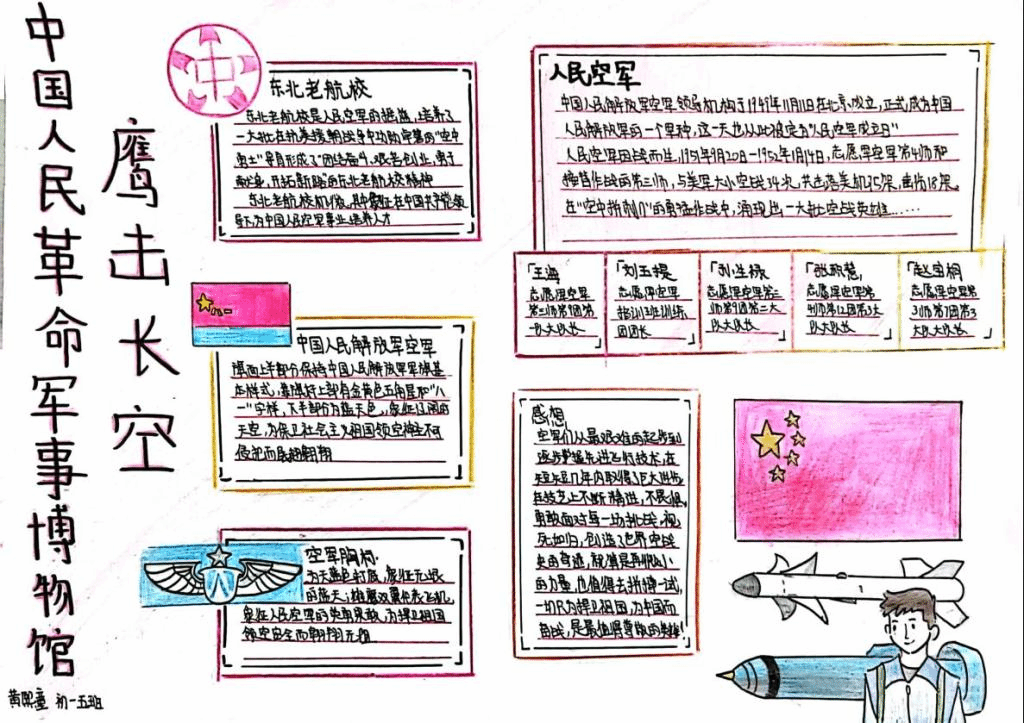 中国人民革命军事博物馆
鹰击长空
中
东北老航校
东北老航校是人民空军的摇篮,培养了
一大批在抗美援朝战争中功勋卓著的"空中
勇士"并且形成了"团结奋斗、艰苦创业、勇于
献身、开拓新路"的东北老航校精神
东北老航校
在中国共产党领
导下为中国人民空军事业培养人才
人民空军
中国人民解放军空军领导机构于1949年11月11日在北京成立,正式成为中国
人民解放军的一个军种,这一天也从此被定为"人民空军成立日"
人民空军因战而生,1951年9月20日—1952年1月14日,志愿军空军第4师和
接替作战的第三师,与美军大小空战34次,共击落美机25架,击伤18架,
在"空中拼刺刀"的勇猛作战中,涌现出一大批空战英雄……
「王海
志愿军空军
第三师第9团第一
大队大队长」
「刘玉堤
志愿军空军
团团长」
「孙生禄
志愿军空军第三
师第9团第二大
队大队长」
「张积慧
志愿军空军第
4师第12团第3大
队大队长」
「赵宝桐
志愿军空军第
3师第7团第3
大队大队长」
中国人民解放军空军
旗面上半部分保持中国人民解放军军旗基
本样式,靠旗杆上部有金黄色五角星和"八
一"字样,下半部分为蓝天色,象征辽阔的
天空,为保卫社会主义祖国领空神圣不可
侵犯而展翅翱翔
空军胸标
为天蓝色打底,象征无垠
的蓝天;雄鹰双翼代表飞机,
象征人民空军的英勇果敢,为捍卫祖国
领空安全而翱翔无阻
八一
感想
空军们从最艰难的起步到
逐步掌握先进飞行技术,在
短短几年内取得了巨大进步,
在技艺上不断精进,不畏惧,
勇敢面对每一场挑战,视
死如归,创造了世界空战
史的奇迹,就算是再微小
的力量,也值得去拼搏一试,
一切只为捍卫祖国,为中国而
奋战,是最值得尊敬的英雄!
黄熙童 初一五班